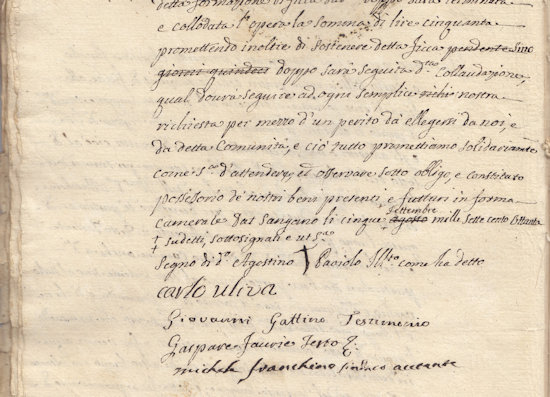 detta formazione
e collodata l'opera la somma di lire cinquanta
promettendo inoltre di sostenere detta ficca pendente sino
giorni quindeci doppo sarà seguita d.ta Collaudazione,
qual dovrà seguire ad ogni semplice nostra
richiesta per mezzo d'un perito da ellegersi da noi, e
da detta Comunità, e ciò tutto promettiamo solidariamente
come s.a d'attendere, ed osservare sotto obligo, e constituto
possessorio de nostri beni presenti, e futturi in forma
camerale Dat Sangano li cinque agosto settembre mille sette cento ottanta
† sudetti, sottosignati e ut s.a
Segno di d.o Agostino † Paciolo Ill.to come ha detto
carlo uliva
Giovanni Gattino Testimonio
Gaspare Jaurie Testo
michele franchino sindaco accetante